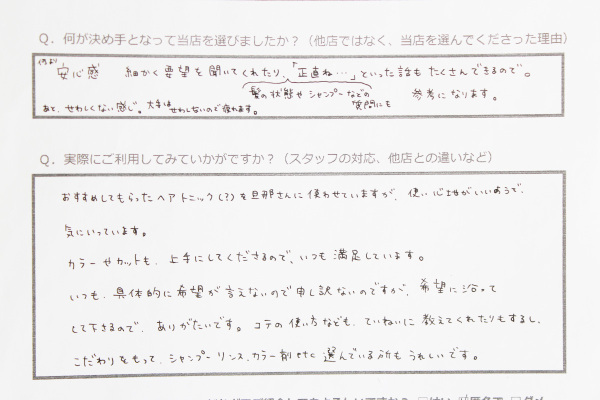 Q. 何が決め手となって当店を選びましたか？（他店ではなく、当店を選んでくださった理由）
何より
安心感 細かく要望を聞いてくれたり、「正直ね…」といった話もたくさんできるので。
髪の状態やシャンプーなどの質問にも 参考になります。
あと、せわしくない感じ。大手はせわしないので疲れます。
Q. 実際にご利用してみていかがですか？（スタッフの対応、他店との違いなど）
おすすめしてもらったヘアトニック(？)を旦那さんに使わせていますが、使い心地がいいようで、
気にいっています。
カラーやカットも、上手にしてくださるので、いつも満足しています。
いつも、具体的に希望が言えないので申し訳ないのですが、希望に沿って
して下さるので、ありがたいです。コテの使い方なども、ていねいに教えてくれたりもするし、
こだわりをもって、シャンプーリンス、カラー剤etc選んでいる所もうれしいです。